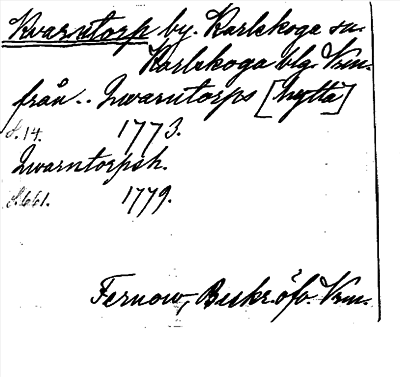 Kvarntorp by. Karlskoga sn.
Karlskoga blg. Vrm.
från.. Qwarntorps [hytta]
s. 14. 1773.
Qwarntorpsh.
s. 661. 1779.
Fernow, Beskr. öfv. Vrm.